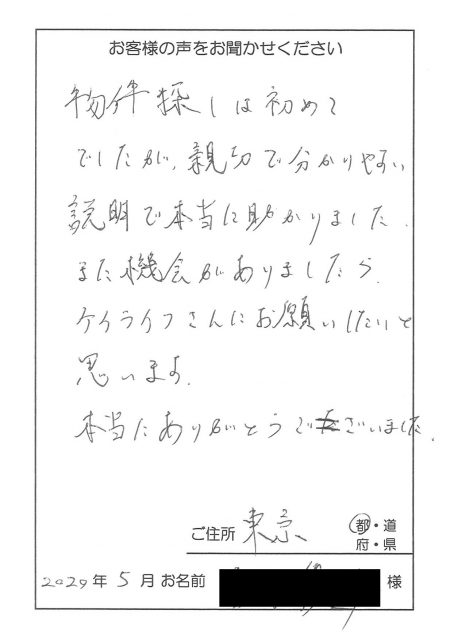 お客様の声をお聞かせください
物件探しは初めて
でしたが、親切で分かりやすい
説明で本当に助かりました.
また機会がありましたら.
ケイライフさんにお願いしたいと
思います.
本当にありがとうございました.
ご住所 東京 都・道
府・県
2029年 5月 お名前 様